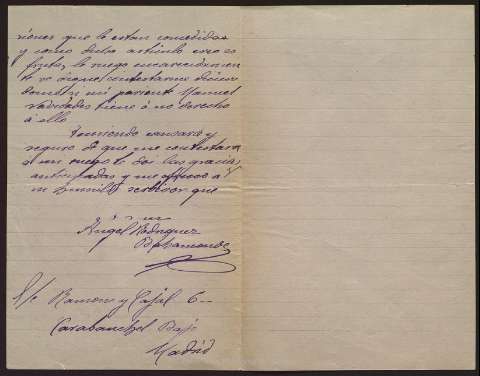 ciones que le estan concedidas
y como dicho articulo creo es
le ruego encarecidamen
te se digne contestarme dicien
dome si mi pariente Manuel
tiene ó no derecho
á ello
Temiendo cansarle y
seguro de que me contestara
á mi ruego le doi las gracias
anticipadas y me ofrezco á
su humilde servidor que

Angel Rodriguez
Bahamonde
S/c Ramon y Cajal 6
Carabanchel Bajo
Madrid